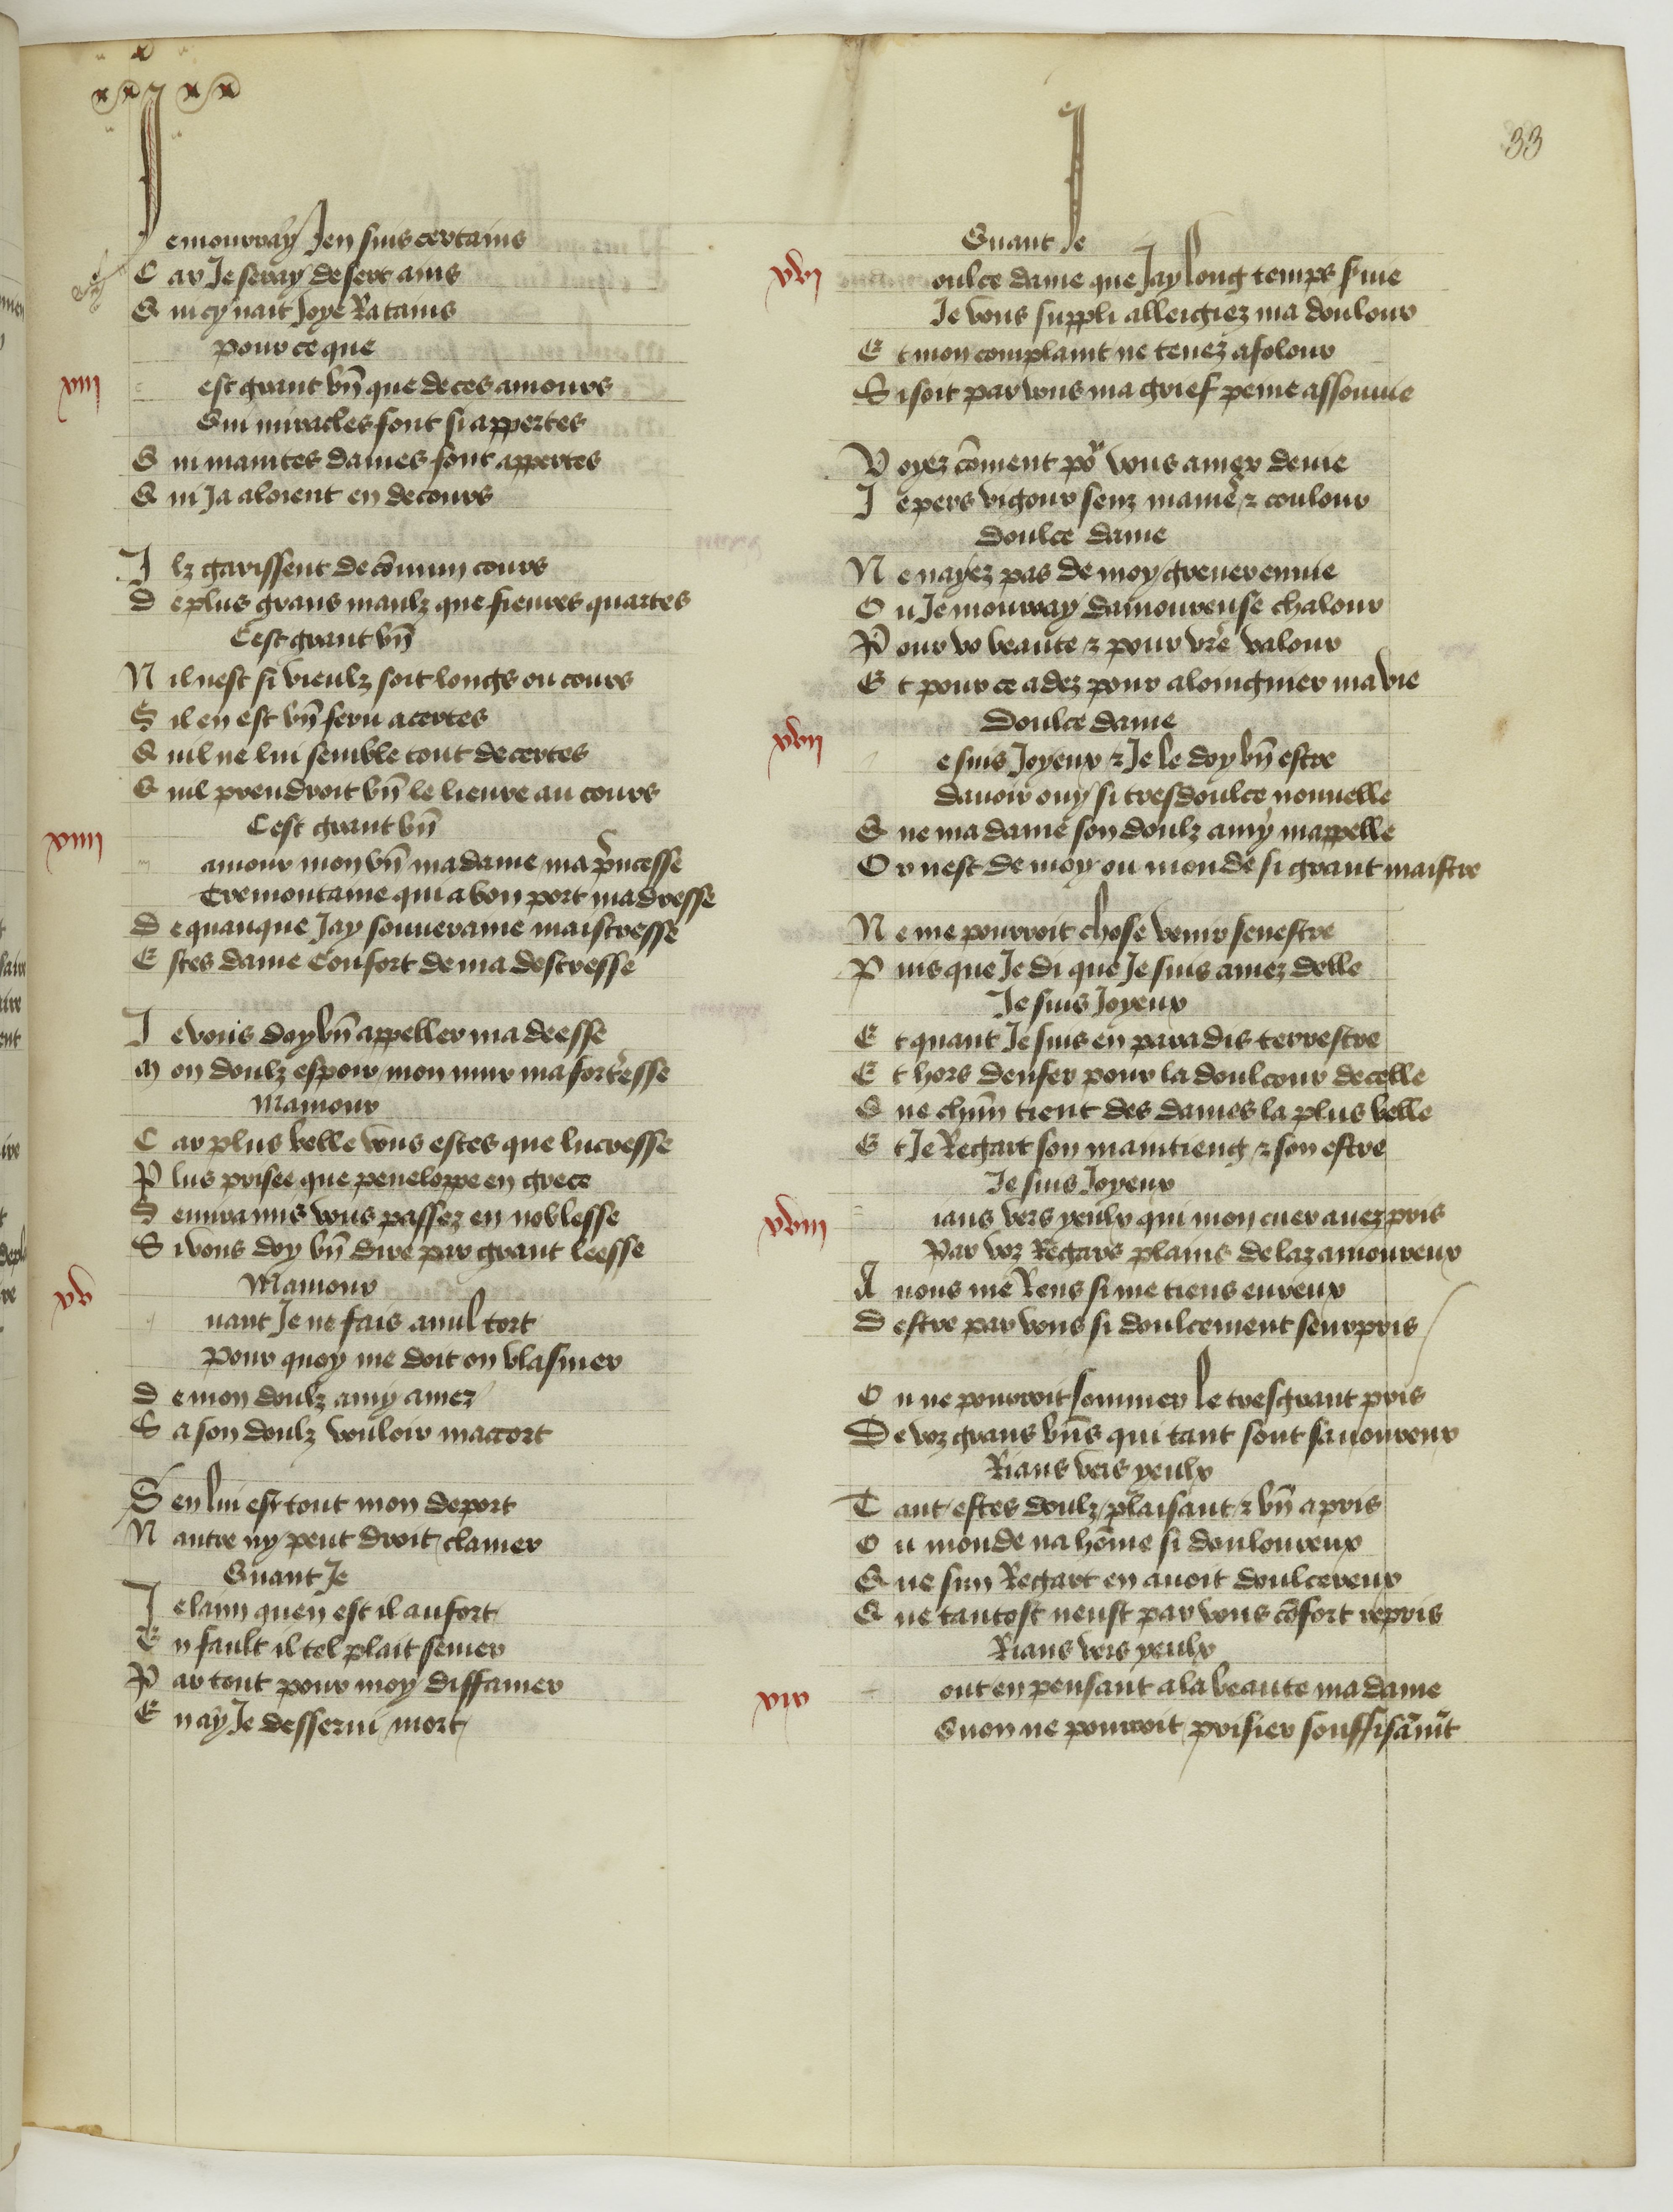 33
Je mourray Jen suis certains
Car Je seray desert ains
Qui cy nait Joye Ratains
Pour ce que
xiii
est grant bn̄ que de ces amours
Qui miracles font si appertes
Qui maintes dames font appertes
Qui Ja aloient en decours
Ilz garissent de cōmun cours
De plus grans maulz que fieures quartes
Cest grant bn̄
Nil nest si vieulz soit longs ou cours
Sil en est bn̄ feru acertes
Quil ne lui semble tout de certes
Quil prendroit bn̄ le lieure au cours
Cest grant bn̄
xiiii
amour mon bn̄ ma dame ma p̄ncesse
Tremontaine qui a bon port madresse
De quanque Jay souueraine maistresse
Estes dame Confort de ma destresse
Je vous doy bn̄ appeller ma deesse
Mon doulz espoir mon mur ma fort'esse
Mamour
Car plus belle vous estes que lucresse
Plus prisee que peneloppe en grece
Semiramis vous passez en noblesse
Si vous doy bn̄ dire par grant leesse
Mamour
xv
uant Je ne fais a nul tort
Pour quoy me doit on blasmer
De mon doulz amy amez
Sa son doulz vouloir macort
Sen lui est tout mon deport
Nautre ny peut droit clamer
Quant Je
Je laim quen est il au fort
En fault il tel plait semer
Par tout pour moy diffamer
En ay Je desserui mort
Quant Je
xvi
oulce dame que Jay long temps siuie
Je vous suppli alleigiez ma doulour
Et mon complaint ne tenez a folour
Si soit par vous ma grief peine assouuie
Voyez cōment po^r vous amer deuie
Je pers vigour senz manie' & coulour
Doulce dame
Ne nayez pas de moy greuer enuie
Ou Je mourray damoureuse chalour
Pour vo beaute & pour vr̄e valour
Et pour ce adez pour aloingnier ma vie
Doulce dame
xvii
e suis Joyeux & Je le doy bn̄ estre
Dauoir ouy si tresdoulce nouuelle
Que ma dame son doulz amy mappelle
Or nest de moy ou monde si grant maistre
Ne me pourroit chose venir senestre
Puis que Je di que Je suis amez delle
Je suis Joyeux
Et quant Je suis en paradis terrestre
Et hors denfer pour la doulcour de celle
Que chūn tient des dames la plus belle
Et Je Regart son maintieng & son estre
Je suis Joyeux
xviii
ians vers yeulx qui mon cuer auez pris
Par voz Regars plains de laz amoureux
A vous me Rens si me tiens eureux
Destre par vous si doulcement seurpris
On ne pourroit sommer le tresgrant pris
De voz grans bn̄s qui tant sont sauoureux
Rians vers yeulx
Tant estes doulz plaisant & bn̄ apris
Ou monde na hōme si douloureux
Que sun Regart en auoit doulcereux
Que tantost neust par vous cōfort repris
Rians vers yeulx
xix
out en pensant a la beaute ma dame
Quon ne pourroit prisier souffisāmt